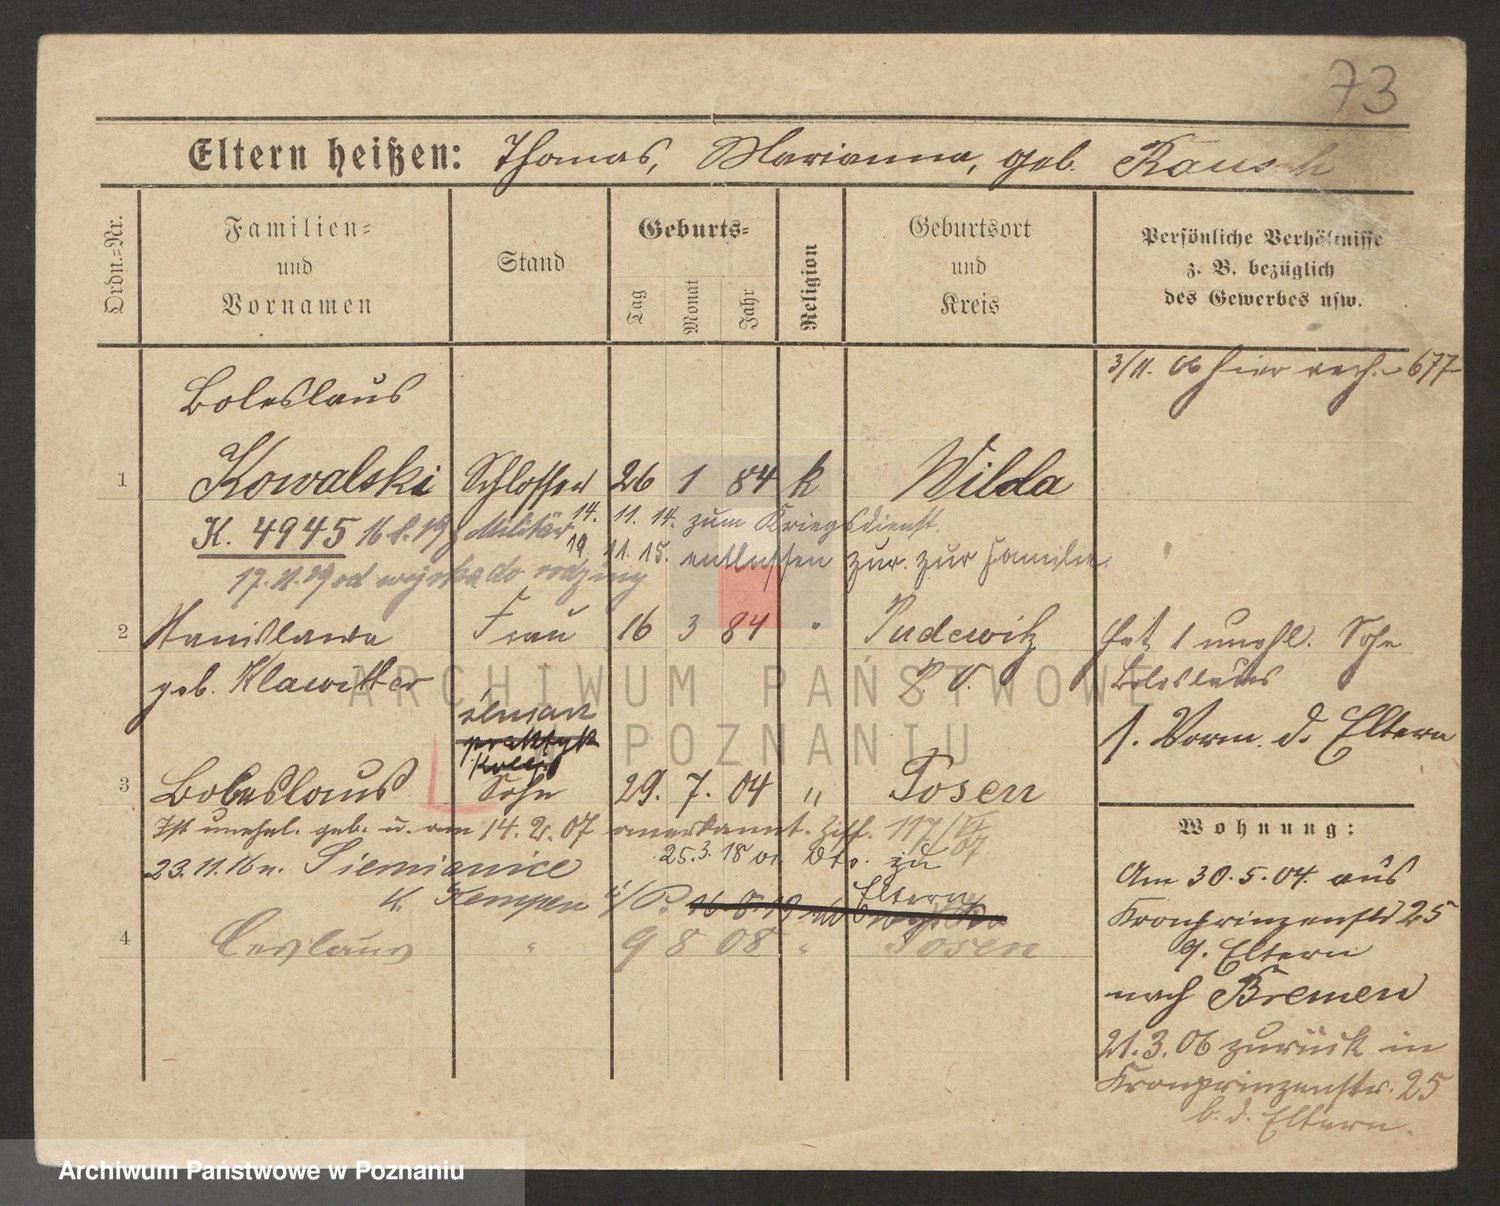 73
Eltern heißen: Thomas, Marianna, geb. Rausch
Ordn.=Nr.
Familien= und Vornamen
Stand
Geburts=
Tag
Monat
Jahr
Religion
Geburtsort und Kreis
Persönliche Verhältnisse z. B. bezüglich des Gewerbes usw.
3/11. ob hier 677
Boleslaus
1 Kowalski Schlosser 26 1 84 k Wilda
K. 4945 Militär 14. 11. 14. zum Kriegsdienst.
19. 11. 15. entlassen zur. zur Familie
17. 11. 19 od wojska do rodziny
2 Stanislawa Frau 16 3 84 " Pudewitz
geb. Klawitter P. O.
hat 1 unehl. Sohn
Boleslaus
1. Vorm. d. Eltern
ślusarz
praktyk
kolej
3 Boleslaus Sohn 29. 7. 04 " Posen
Ist unehel. geb. u. am 14. 2. 07 anerkannt. Ziff. 117/VI 07
23. 11. 16 n. Siemianice 25. 3. 18 v. zu
K. Kempen i/P. Eltern
4 Ceslaus " 9 8 08 " Posen
Wohnung:
Am 30. 5. 04. aus
Kronprinzenstr 25
q. Eltern
nach Bremen
21. 3. 06 zurück in
Kronprinzenstr. 25
b. d. Eltern.
ARCHIWUM PAŃSTWOWE
W POZNANIU
Archiwum Państwowe w Poznaniu